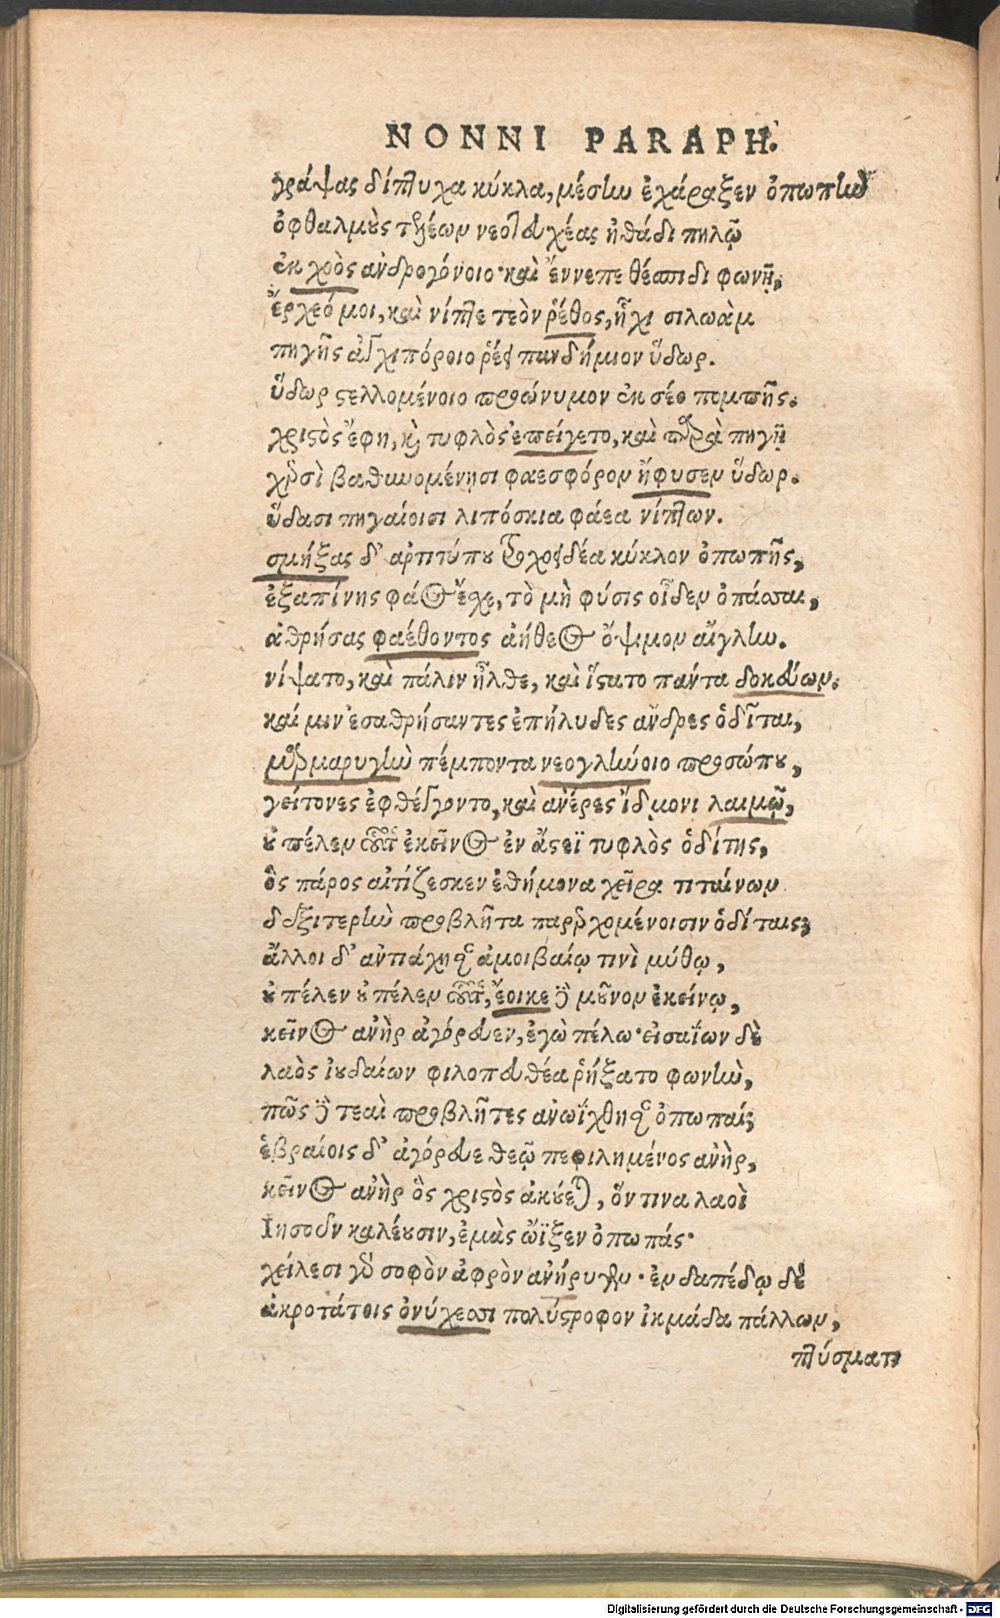 NONNI PARAPH.
γράψας δίπτυχα κύκλα, μέσην ἐχάραξεν ὀπωπὴν
ὀφθαλμοὺς τελέων νεοτευχέας ἠθάδι πηλῷ
ἐκ χροὸς ἀνδρογόνοιο· καὶ ἔννεπε θέσπιδι φωνῇ,
ἔρχεό μοι, καὶ νίπτε τεὸν ῥέθος, ἧχι σιλωὰμ
πηγῆς ἀγχιπόροιο ῥέει πανδήμιον ὕδωρ.
ὕδωρ στελλομένοιο προώνυμον ἐκ σέο πομπῆς.
χριστὸς ἔφη, καὶ τυφλὸς ἐπείγετο, καὶ παρὰ πηγῇ
χερσὶ βαθυνομένῃσι φαεσφόρον ἤφυσεν ὕδωρ.
ὕδασι πηγαίοισι λιπόσκια φάεα νίπτων.
σμήξας δ' ἀρτιτύπου τροχοειδέα κύκλον ὀπωπῆς,
ἐξαπίνης φάος ἔσχε, τὸ μὴ φύσις οἶδεν ὀπάσσαι,
ἀθρήσας φαέθοντος ἀήθεος ὄψιμον αἴγλην.
νίψατο, καὶ πάλιν ἦλθε, καὶ ἵστατο πάντα δοκεύων.
καί μιν ἐσαθρήσαντες ἐπήλυδες ἄνδρες ὁδῖται,
μαρμαρυγὴν πέμποντα νεογλήνοιο προσώπου,
γείτονες ἐφθέγγοντο, καὶ ἀνέρες ἴδμονι λαιμῷ,
οὐ πέλεν οὗτος ἐκεῖνος ἐν ἄστεϊ τυφλὸς ὁδίτης,
ὃς πάρος αἰτίζεσκεν ἐθήμονα χεῖρα τιταίνων
δεξιτερὴν προβλῆτα παρερχομένοισιν ὁδίταις;
ἄλλοι δ' ἀντιάχησαν ἀμοιβαίῳ τινὶ μύθῳ,
οὐ πέλεν οὐ πέλεν οὗτος, ἔοικε δὲ μοῦνον ἐκείνῳ,
κεῖνος ἀνὴρ ἀγόρευεν, ἐγὼ πέλω· εἰσαΐων δὲ
λαὸς ἰουδαίων φιλοπευθέα ῥήξατο φωνὴν,
πῶς δὲ τεαὶ προβλῆτες ἀνωΐχθησαν ὀπωπαί;
ἑβραίοις δ' ἀγόρευε θεῷ πεφιλημένος ἀνὴρ,
κεῖνος ἀνὴρ ὃς χριστὸς ἀκούεται, ὅν τινα λαοὶ
Ἰησοῦν καλέουσιν, ἐμὰς ὤϊξεν ὀπωπάς·
χείλεσι γὰρ σοφὸν ἀφρὸν ἀνήρυγεν· ἐν δαπέδῳ δὲ
ἀκροτάτοις ὀνύχεσσι πολύστροφον ἰκμάδα πάλλων,
πτύσματι
Digitalisierung gefördert durch die Deutsche Forschungsgemeinschaft - DFG